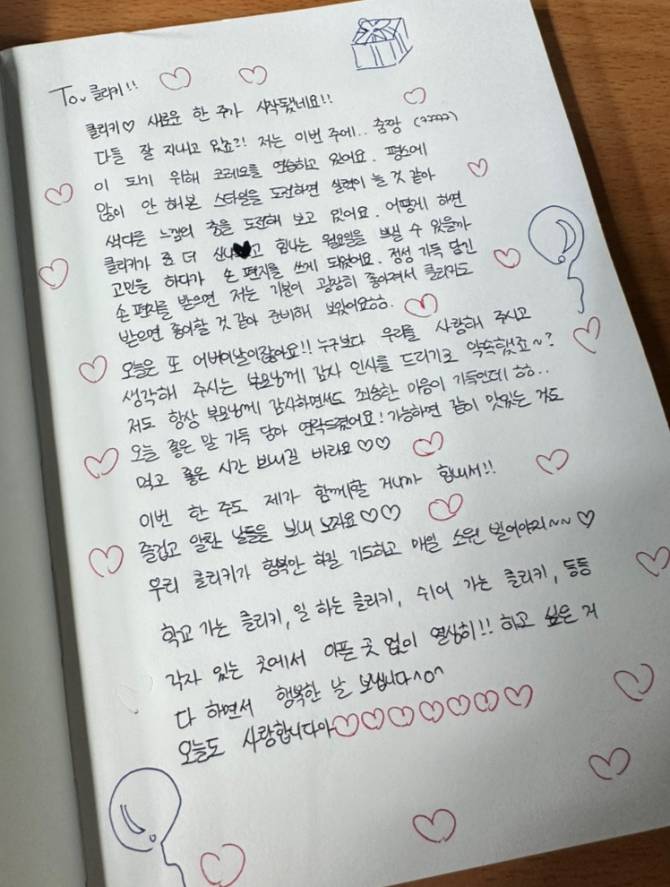 To. 클리키!!
클리키♡ 새로운 한 주가 시작됐네요!!
다들 잘 지내고 있죠?! 저는 이번 주에.. 춤짱 (ㅋㅋㅋㅋㅋ)
이 되기 위해 코레오를 연습하고 있어요. 평소에
많이 안 해본 스타일을 도전하면 실력이 늘 것 같아
색다른 느낌의 춤을 도전해 보고 있어요. 어떻게 하면
클리키가 좀 더 신나♥고 힘나는 월요일을 보낼 수 있을까
고민을 하다가 손 편지를 쓰게 되었어요. 정성 가득 담긴
손 편지를 받으면 저는 기분이 굉장히 좋아져서 클리키도
받으면 좋아할 것 같아 준비해 보았어요ㅎㅎ.
오늘은 또 어버이날이잖아요!! 누구보다 우리를 사랑해 주시고
생각해 주시는 부모님께 감사 인사를 드리기로 약속했죠~?
저도 항상 부모님께 감사하면서도 죄송한 마음이 가득인데 ㅎㅎ..
오늘 좋은 말 가득 담아 연락드렸어요! 가능하면 같이 맛있는 것도
먹고 좋은 시간 보내길 바라요♡♡
이번 한 주도 제가 함께할 거니까 힘내서!!
즐겁고 알찬 날들을 보내 보자요♡♡
우리 클리키가 행복만 하길 기도하고 매일 소원 빌어야지~~♡
학교 가는 클리키, 일 하는 클리키, 쉬어 가는 클리키, 등등
각자 있는 곳에서 아픈 곳 없이 열심히!! 하고 싶은 거
다 하면서 행복한 날 보냅니다^o^
오늘도 사랑합니다아♡♡♡♡♡♡♡